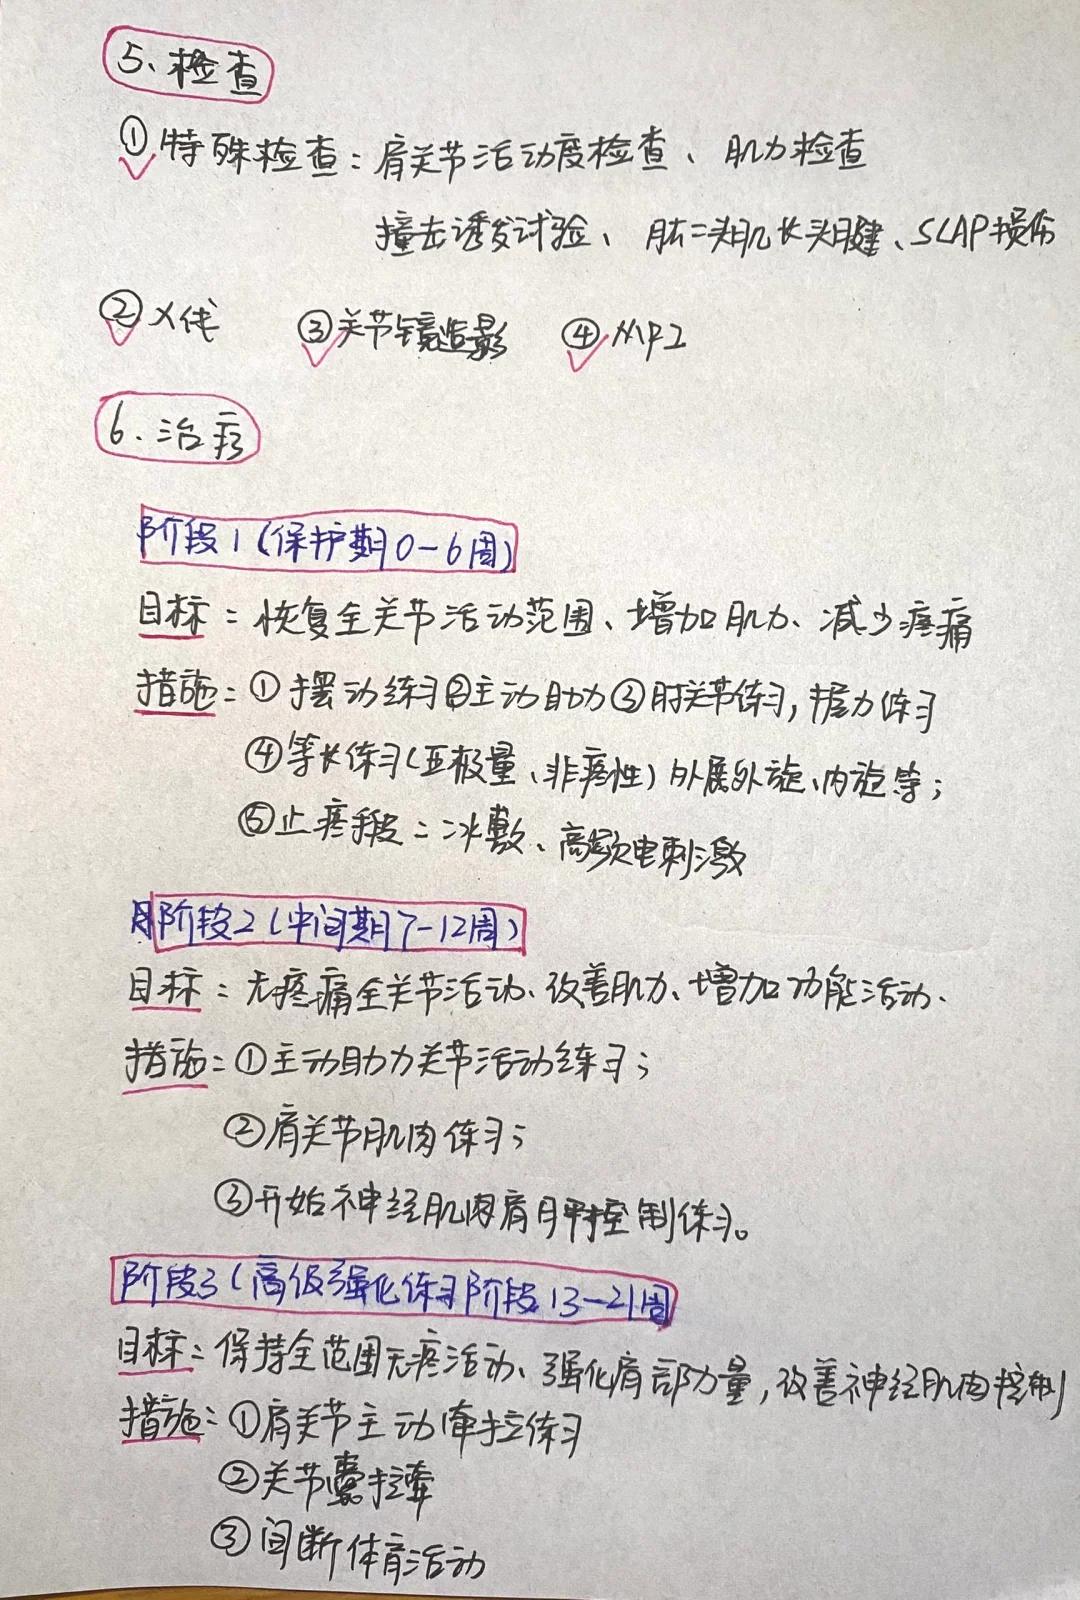 5、检查
①特殊检查：肩关节活动度检查、肌力检查
撞击诱发试验、肱二头肌长头腱、SLAP损伤
②X线 ③关节镜造影 ④MRI
6.治疗
阶段1(保护期0-6周)
目标：恢复全关节活动范围、增加肌力、减少疼痛
措施：①摆动练习②主动助力③肘关节练习,握力练习
④等长练习(亚极量、非疼性)外展外旋、内旋等；
⑤止疼手段：冰敷、高频电刺激
阶段2(中间期7-12周)
目标：无疼痛全关节活动、改善肌力、增加功能活动、
措施：①主动助力关节活动练习；
②肩关节肌肉练习；
③开始神经肌肉肩胛控制练习。
阶段3(高级强化练习阶段13-21周
目标：保持全范围无疼活动、强化肩部力量,改善神经肌肉控制
措施：①肩关节主动牵拉练习
②关节囊拉牵
③间断体育活动